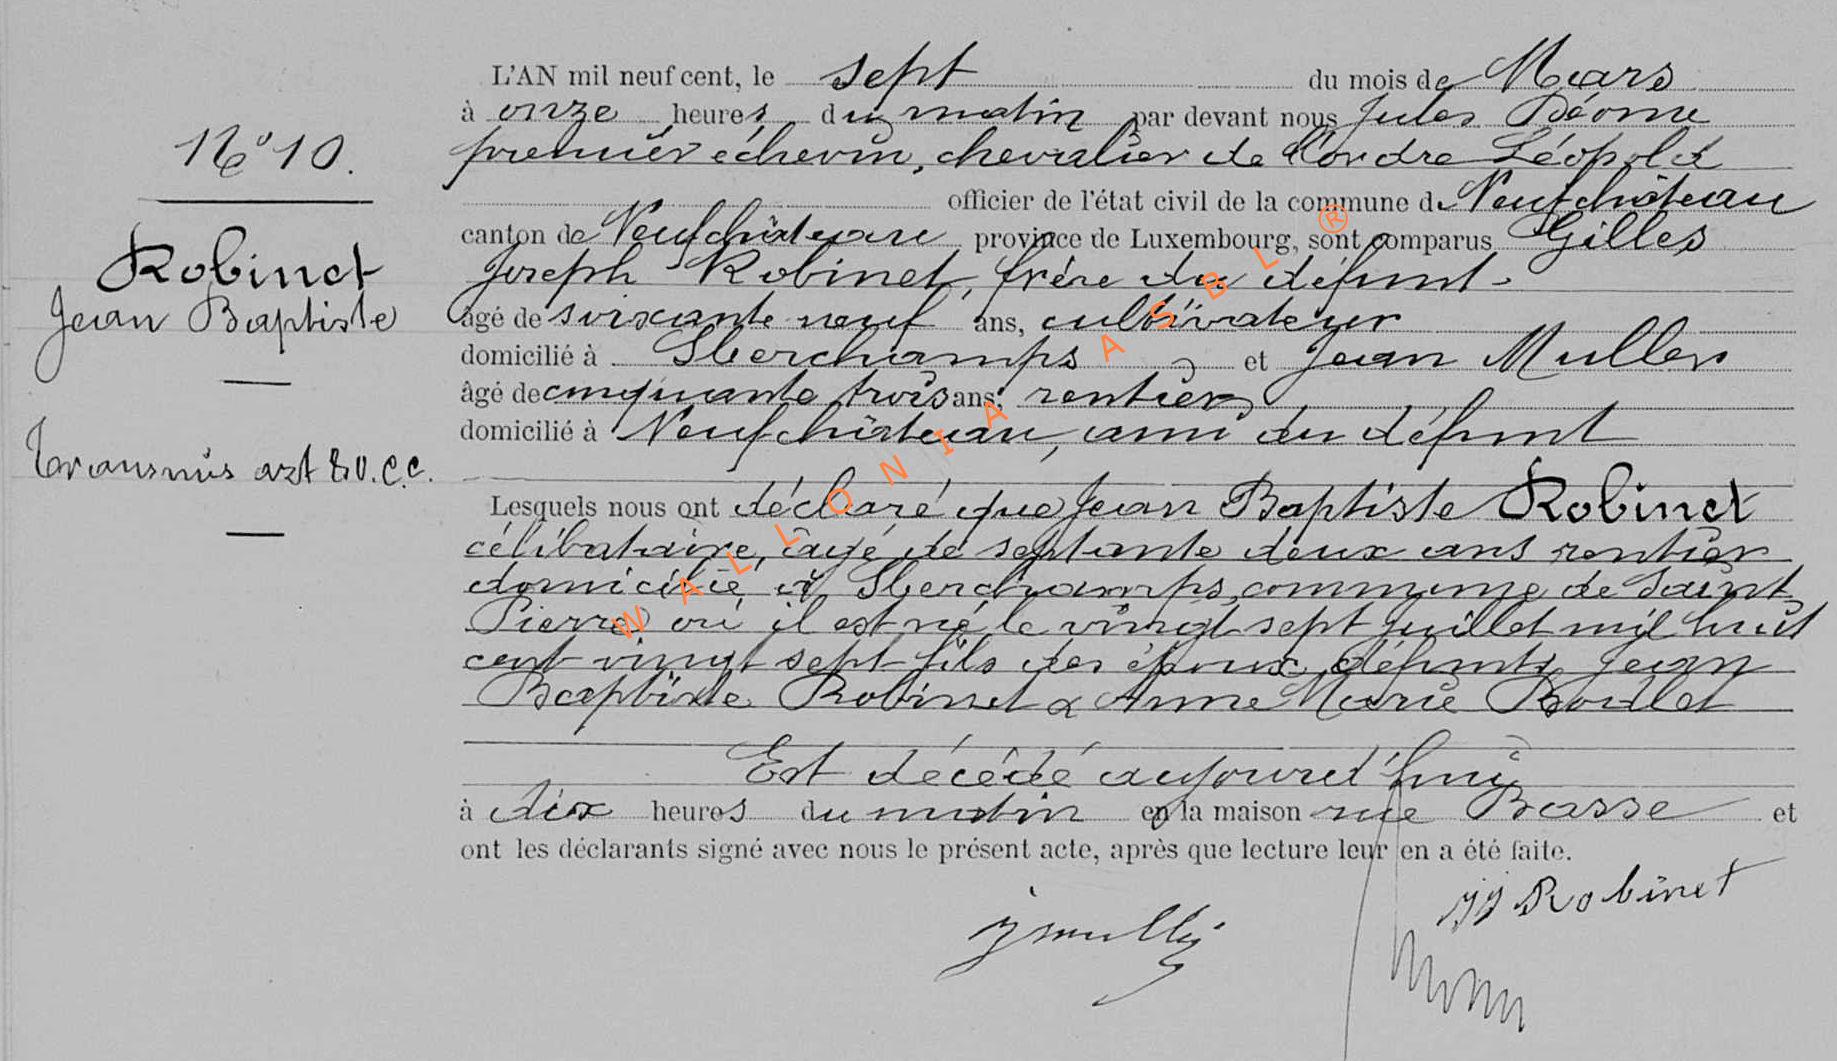 N° 10.
Robinet
Jean Baptiste
Transmis art 80. C. C.
L'AN mil neuf cent, le sept du mois de Mars
à onze heures du matin par devant nous Jules Déome
premier échevin, chevalier de l'ordre Léopold
officier de l'état civil de la commune de Neufchâteau
canton de Neufchâteau province de Luxembourg, sont comparus Gilles
Joseph Robinet, frère du défunt
âgé de soixante neuf ans, cultivateur
domicilié à Sberchamps et Jean Muller
âgé de cinquante trois ans, rentier
domicilié à Neufchâteau, ami du défunt
Lesquels nous ont déclaré que Jean Baptiste Robinet
célibataire, âgé de septante deux ans rentier
domicilié à Sberchamps, commune de Saint-
Pierre où il est né le vingt sept juillet mil huit
cent vingt sept fils des époux défunts Jean
Baptiste Robinet & Anne Marie Boulet
Est décédé aujourd'hui
à dix heures du matin en la maison rue Basse et
ont les déclarants signé avec nous le présent acte, après que lecture leur en a été faite.
Robinet
J Muller
WALLONIA ASBL ®